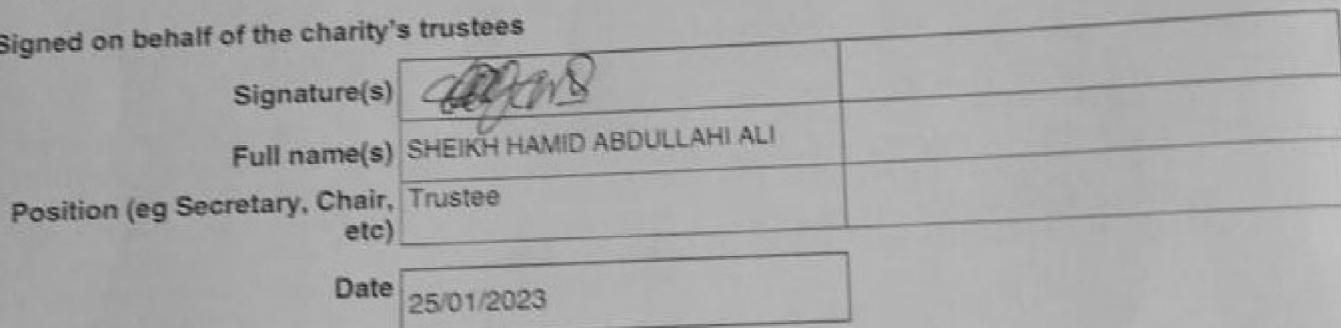 Signed on behalf of the charity's trustees
Signature(s)
Full name(s) SHEIKH HAMID ABDULLAHI ALI
Position (eg Secretary, Chair, etc) Trustee
Date 25/01/2023